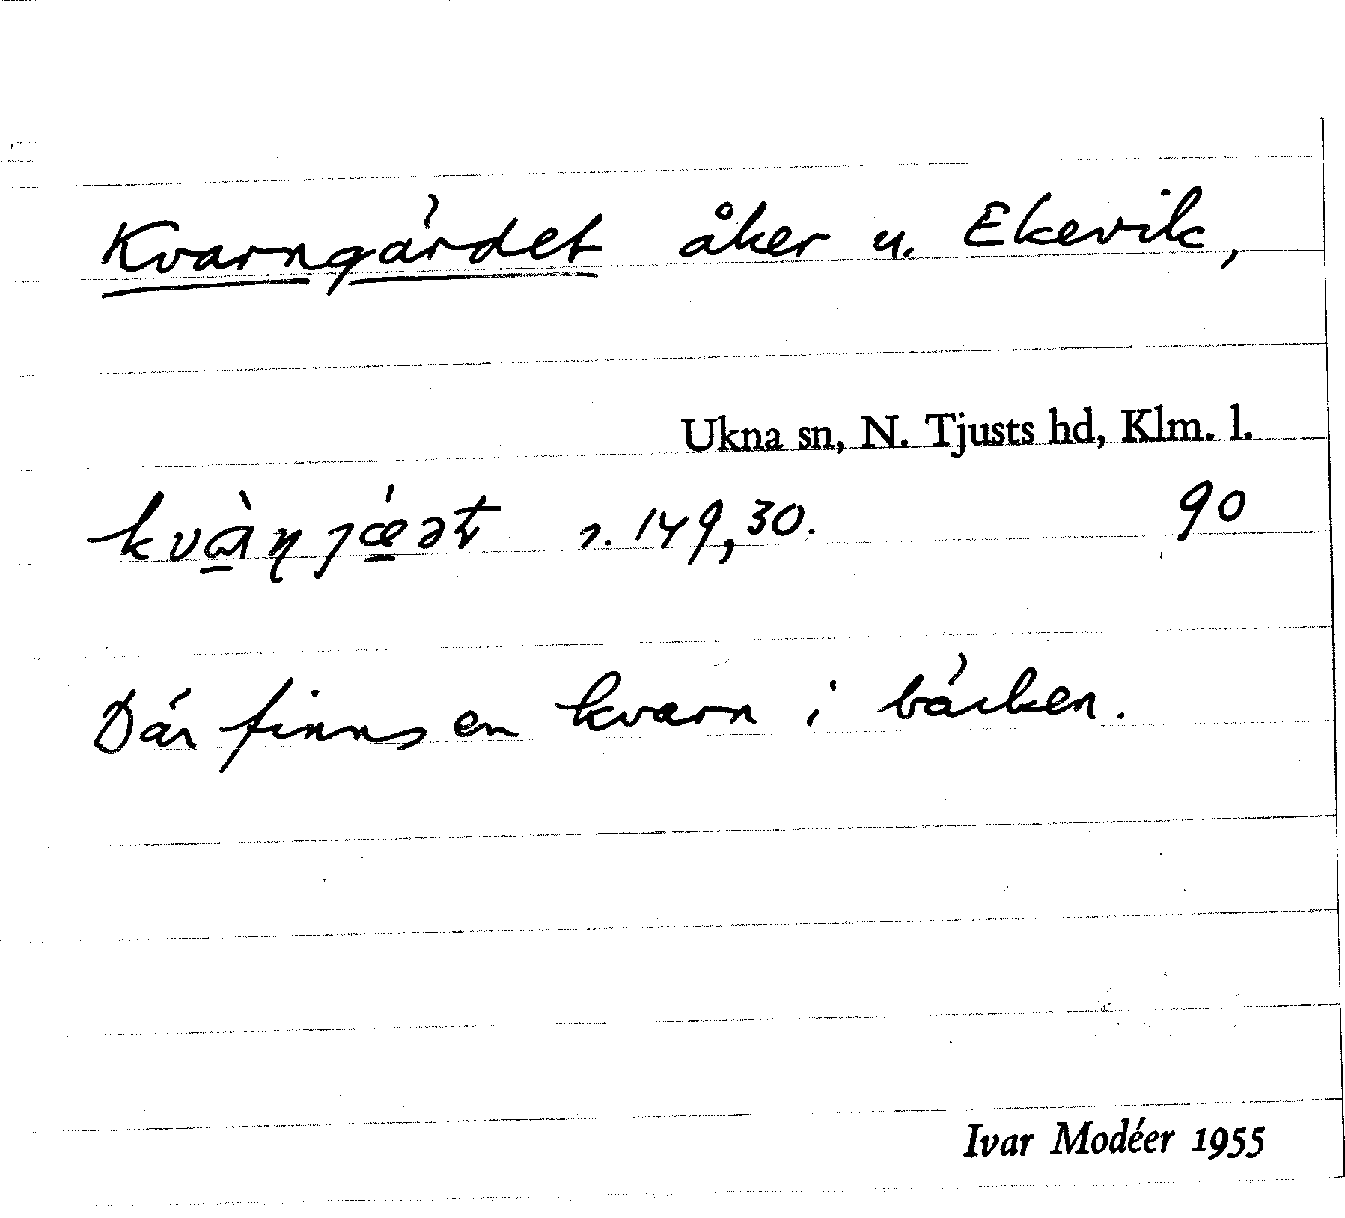 Kvarngärdet åker u. Ekevik,
Ukna sn, N. Tjusts hd, Klm. l.
s. 149,30. 90
Där finns en kvarn i bäcken.
Ivar Modéer 1955